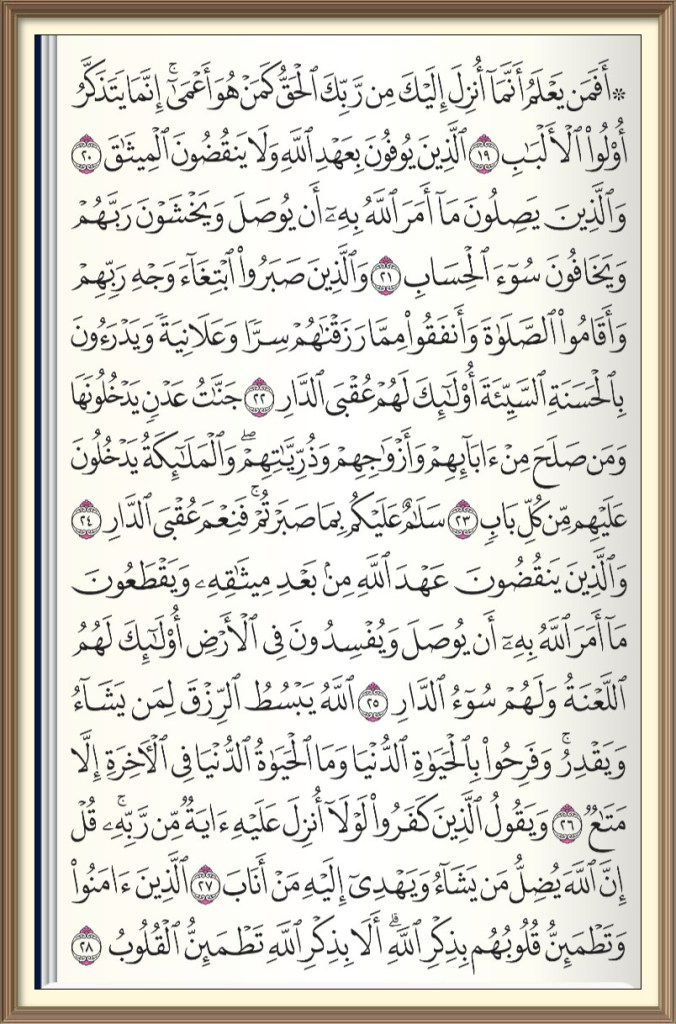 ۞ أَفَمَن يَعْلَمُ أَنَّمَآ أُنزِلَ إِلَيْكَ مِن رَّبِّكَ ٱلْحَقُّ كَمَنْ هُوَ أَعْمَىٰٓۚ إِنَّمَا يَتَذَكَّرُ
أُو۟لُوا۟ ٱلْأَلْبَٰبِ ١٩ ٱلَّذِينَ يُوفُونَ بِعَهْدِ ٱللَّهِ وَلَا يَنقُضُونَ ٱلْمِيثَٰقَ ٢٠
وَٱلَّذِينَ يَصِلُونَ مَآ أَمَرَ ٱللَّهُ بِهِۦٓ أَن يُوصَلَ وَيَخْشَوْنَ رَبَّهُمْ
وَيَخَافُونَ سُوٓءَ ٱلْحِسَابِ ٢١ وَٱلَّذِينَ صَبَرُوا۟ ٱبْتِغَآءَ وَجْهِ رَبِّهِمْ
وَأَقَامُوا۟ ٱلصَّلَوٰةَ وَأَنفَقُوا۟ مِمَّا رَزَقْنَٰهُمْ سِرًّا وَعَلَانِيَةً وَيَدْرَءُونَ
بِٱلْحَسَنَةِ ٱلسَّيِّئَةَ أُو۟لَٰٓئِكَ لَهُمْ عُقْبَى ٱلدَّارِ ٢٢ جَنَّٰتُ عَدْنٍ يَدْخُلُونَهَا
وَمَن صَلَحَ مِنْ ءَابَآئِهِمْ وَأَزْوَٰجِهِمْ وَذُرِّيَّٰتِهِمْۖ وَٱلْمَلَٰٓئِكَةُ يَدْخُلُونَ
عَلَيْهِم مِّن كُلِّ بَابٍ ٢٣ سَلَٰمٌ عَلَيْكُم بِمَا صَبَرْتُمْۚ فَنِعْمَ عُقْبَى ٱلدَّارِ ٢٤
وَٱلَّذِينَ يَنقُضُونَ عَهْدَ ٱللَّهِ مِنۢ بَعْدِ مِيثَٰقِهِۦ وَيَقْطَعُونَ
مَآ أَمَرَ ٱللَّهُ بِهِۦٓ أَن يُوصَلَ وَيُفْسِدُونَ فِى ٱلْأَرْضِ أُو۟لَٰٓئِكَ لَهُمُ
ٱللَّعْنَةُ وَلَهُمْ سُوٓءُ ٱلدَّارِ ٢٥ ٱللَّهُ يَبْسُطُ ٱلرِّزْقَ لِمَن يَشَآءُ
وَيَقْدِرُۚ وَفَرِحُوا۟ بِٱلْحَيَوٰةِ ٱلدُّنْيَا وَمَا ٱلْحَيَوٰةُ ٱلدُّنْيَا فِى ٱلْءَاخِرَةِ إِلَّا
مَتَٰعٌ ٢٦ وَيَقُولُ ٱلَّذِينَ كَفَرُوا۟ لَوْلَآ أُنزِلَ عَلَيْهِ ءَايَةٌ مِّن رَّبِّهِۦۚ قُلْ
إِنَّ ٱللَّهَ يُضِلُّ مَن يَشَآءُ وَيَهْدِىٓ إِلَيْهِ مَنْ أَنَابَ ٢٧ ٱلَّذِينَ ءَامَنُوا۟
وَتَطْمَئِنُّ قُلُوبُهُم بِذِكْرِ ٱللَّهِۗ أَلَا بِذِكْرِ ٱللَّهِ تَطْمَئِنُّ ٱلْقُلُوبُ ٢٨